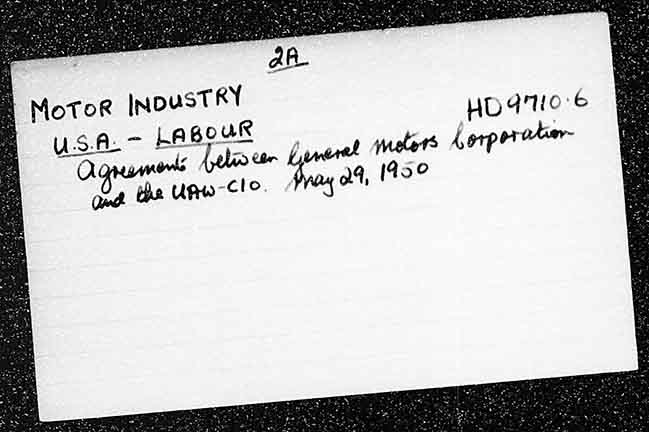 2A
MOTOR INDUSTRY
HD9710.6
U.S.A. - LABOUR
Agreements between General Motors Corporation
and the UAW-CIO. May 29, 1950